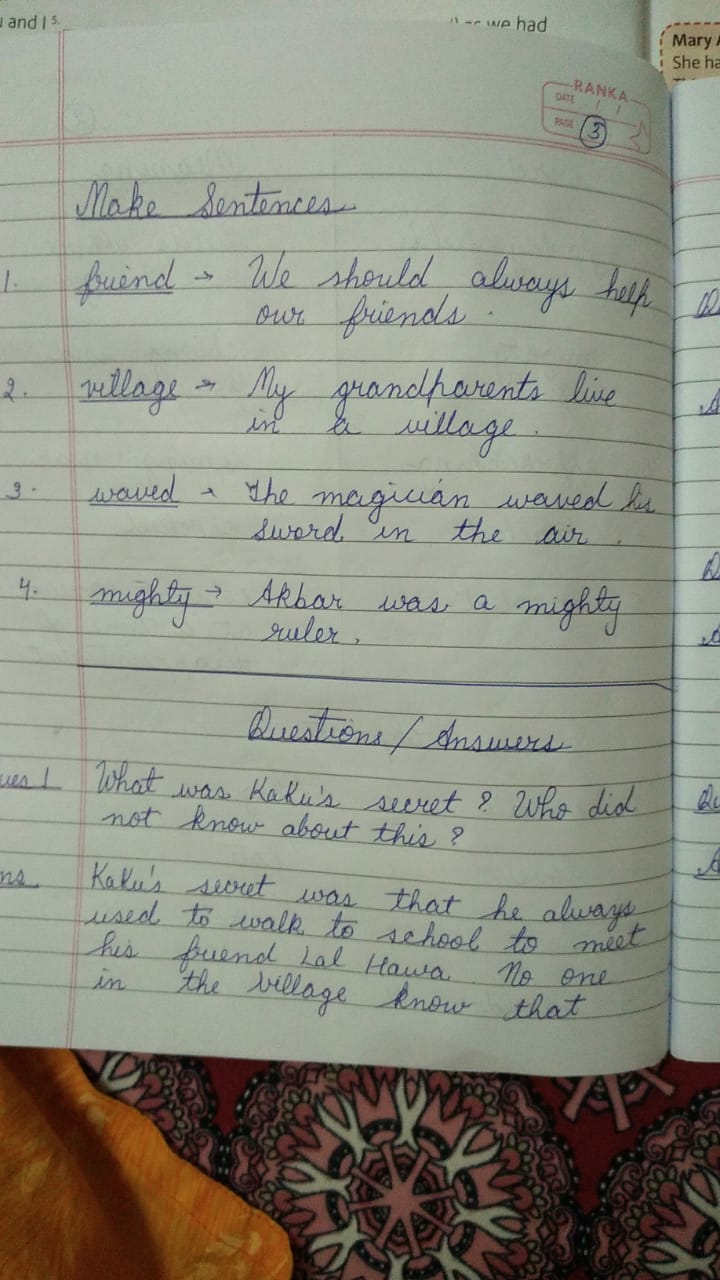 and I 5.
we had
Mary
She ha
RANKA
DATE / /
PAGE 3
Make Sentences
1. friend → We should always help
our friends.
2. village → My grandparents live
in a village.
3. waved → The magician waved his
sword in the air.
4. mighty → Akbar was a mighty
ruler.
Questions / Answers
ues 1 What was Kaku's secret? Who did
not know about this?
ns Kaku's secret was that he always
used to walk to school to meet
his friend Lal Hawa. No one
in the village know that